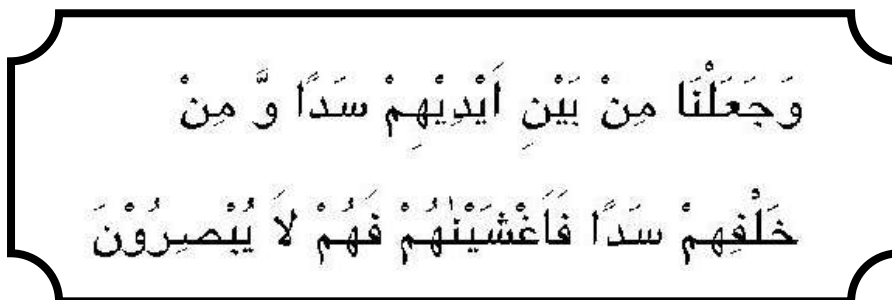 وَجَعَلْنَا مِنْ بَيْنِ اَيْدِيْهِمْ سَدًا وَّ مِنْ
خَلْفِهِمْ سَدًا فَاَغْشَيْنٰهُمْ فَهُمْ لاَ يُبْصِرُوْنَ